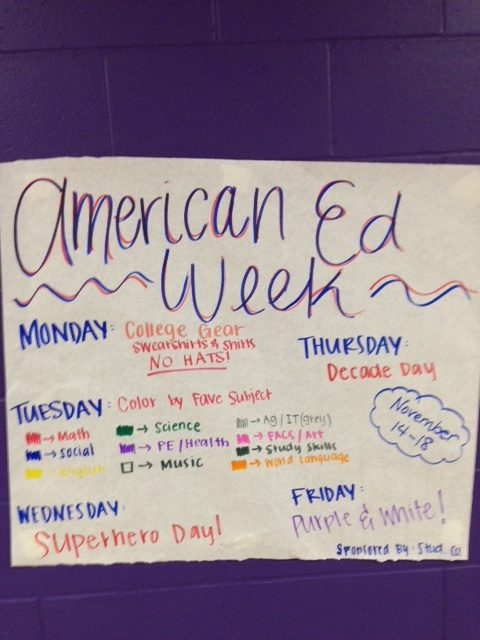 American Ed
Week
MONDAY: College Gear
Swearshirts & Shirts
NO HATS!
THURSDAY:
Decade Day
TUESDAY: Color by Fave Subject
→ Math
→ Social
→ English
→ Science
→ PE/Health
→ Music
→ Ag/IT(grey)
→ FACS/Art
→ Study Skills
→ World Language
November
14-18
WEDNESDAY:
Superhero Day!
FRIDAY:
Purple & White!
Sponsored By: Stud. Co